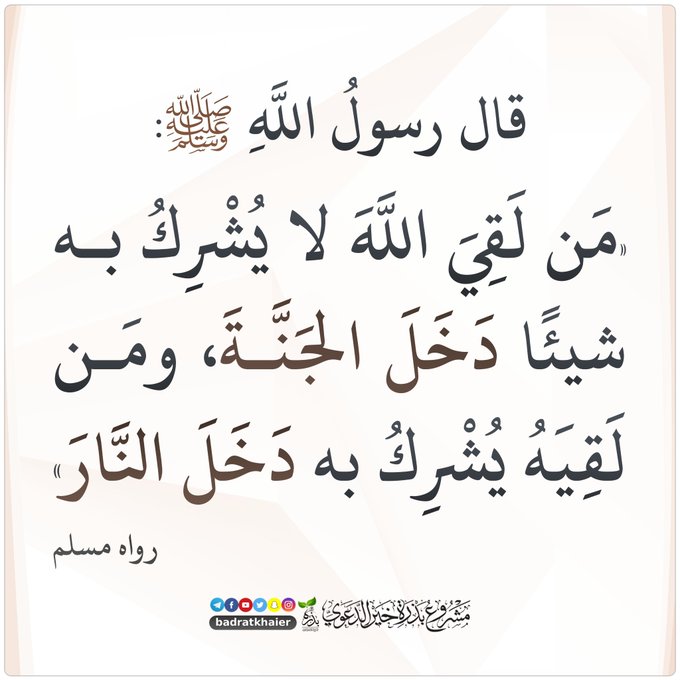 قال رسولُ اللَّهِ ﷺ:
«مَن لَقِيَ اللَّهَ لا يُشْرِكُ بـه
شيئًا دَخَلَ الجَنَّـةَ، ومَـن
لَقِيَهُ يُشْرِكُ به دَخَلَ النَّارَ»
رواه مسلم
مَشْرُوعُ بَذْرَةِ خَيْرٍ الدَّعَوِي
بذرة
badratkhaier